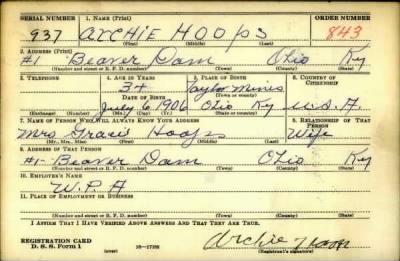 SERIAL NUMBER 1. NAME (Print) ORDER NUMBER
937 ARCHIE HOOPS 843
(First) (Middle) (Last)
2. ADDRESS (Print)
#1 Beaver Dam Ohio Ky
(Number and street or R. F. D. number) (Town) (County) (State)
3. TELEPHONE 4. AGE IN YEARS 5. PLACE OF BIRTH 6. COUNTRY OF CITIZENSHIP
34 Taylor Mines
DATE OF BIRTH (Town or county)
July 6 1906 Ohio Ky U.S.A.
(Exchange) (Number) (Mo.) (Day) (Yr.) (State or country)
7. NAME OF PERSON WHO WILL ALWAYS KNOW YOUR ADDRESS 8. RELATIONSHIP OF THAT PERSON
Mrs Gracie Hoops Wife
(Mr., Mrs., Miss) (First) (Middle) (Last)
9. ADDRESS OF THAT PERSON
#1 Beaver Dam Ohio Ky
(Number and street or R. F. D. number) (Town) (County) (State)
10. EMPLOYER'S NAME
W.P.A
11. PLACE OF EMPLOYMENT OR BUSINESS
(Number and street or R. F. D. number) (Town) (County) (State)
I AFFIRM THAT I HAVE VERIFIED ABOVE ANSWERS AND THAT THEY ARE TRUE.
REGISTRATION CARD
D. S. S. Form 1 Archie Hoops